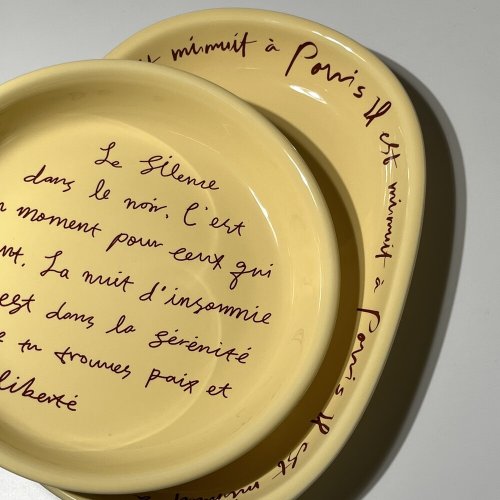 minuit à Parris il est minuit à Parris il est
Le Silence
dans le noir. C'est
moment pour ceux qui
La nuit d'insomnie
est dans la sérénité
tu trouves paix et
liberté